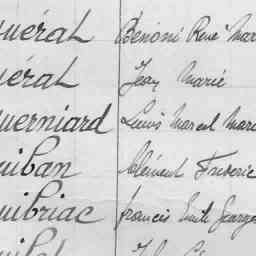 uéral Bénoni René Mar
uéral Jean Marie
uerniard Louis Marcel Mari
uiban Clément Frédéric
uibriac Francis Emile Georges